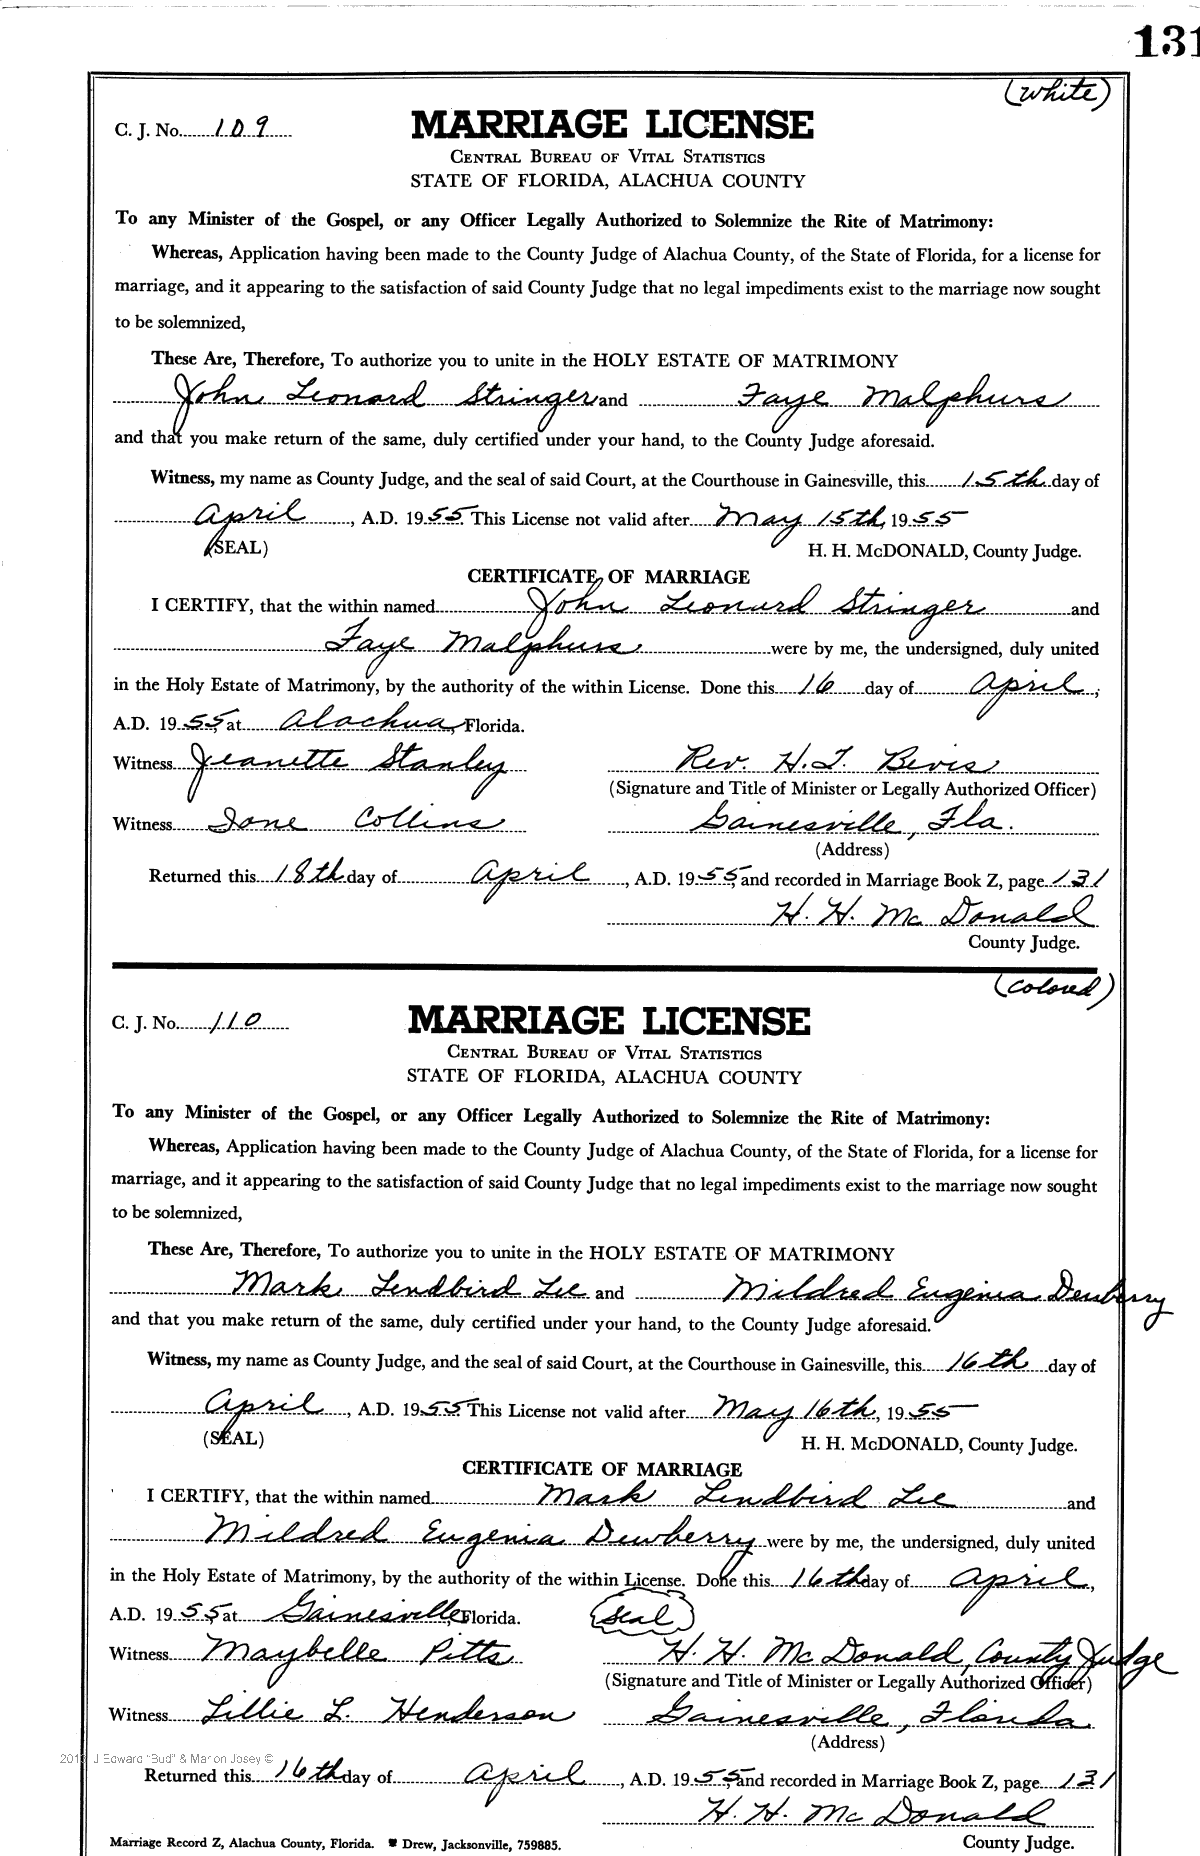 131
(White)
C. J. No. 109
MARRIAGE LICENSE
CENTRAL BUREAU OF VITAL STATISTICS
STATE OF FLORIDA, ALACHUA COUNTY
To any Minister of the Gospel, or any Officer Legally Authorized to Solemnize the Rite of Matrimony:
Whereas, Application having been made to the County Judge of Alachua County, of the State of Florida, for a license for
marriage, and it appearing to the satisfaction of said County Judge that no legal impediments exist to the marriage now sought
to be solemnized,
These Are, Therefore, To authorize you to unite in the HOLY ESTATE OF MATRIMONY
John Leonard Stringer and Faye Malphurs
and that you make return of the same, duly certified under your hand, to the County Judge aforesaid.
Witness, my name as County Judge, and the seal of said Court, at the Courthouse in Gainesville, this 15th day of
April, A.D. 1955. This License not valid after May 15th, 1955
(SEAL) H. H. McDONALD, County Judge.
CERTIFICATE OF MARRIAGE
I CERTIFY, that the within named John Leonard Stringer and
Faye Malphurs were by me, the undersigned, duly united
in the Holy Estate of Matrimony, by the authority of the within License. Done this 16 day of April,
A.D. 1955, at Alachua, Florida.
Witness Jeanette Stanley Rev. H.T. Bevis
(Signature and Title of Minister or Legally Authorized Officer)
Witness Ione Collins Gainesville, Fla.
(Address)
Returned this 18th day of April, A.D. 1955, and recorded in Marriage Book Z, page 131
H. H. McDonald
County Judge.
(Colored)
C. J. No. 110
MARRIAGE LICENSE
CENTRAL BUREAU OF VITAL STATISTICS
STATE OF FLORIDA, ALACHUA COUNTY
To any Minister of the Gospel, or any Officer Legally Authorized to Solemnize the Rite of Matrimony:
Whereas, Application having been made to the County Judge of Alachua County, of the State of Florida, for a license for
marriage, and it appearing to the satisfaction of said County Judge that no legal impediments exist to the marriage now sought
to be solemnized,
These Are, Therefore, To authorize you to unite in the HOLY ESTATE OF MATRIMONY
Mark Lendbird Lee and Mildred Eugenia Dewberry
and that you make return of the same, duly certified under your hand, to the County Judge aforesaid.
Witness, my name as County Judge, and the seal of said Court, at the Courthouse in Gainesville, this 16th day of
April, A.D. 1955. This License not valid after May 16th, 1955
(SEAL) H. H. McDONALD, County Judge.
CERTIFICATE OF MARRIAGE
I CERTIFY, that the within named Mark Lendbird Lee and
Mildred Eugenia Dewberry were by me, the undersigned, duly united
in the Holy Estate of Matrimony, by the authority of the within License. Done this 16th day of April,
A.D. 1955, at Gainesville, Florida. Seal
Witness Maybelle Pitts H. H. McDonald, County Judge
(Signature and Title of Minister or Legally Authorized Officer)
Witness Lillie L. Henderson Gainesville, Florida.
(Address)
J Edward "Bud" & Marion Josey ©
Returned this 16th day of April, A.D. 1955, and recorded in Marriage Book Z, page 131
H. H. McDonald
Marriage Record Z, Alachua County, Florida. Drew, Jacksonville, 759885. County Judge.